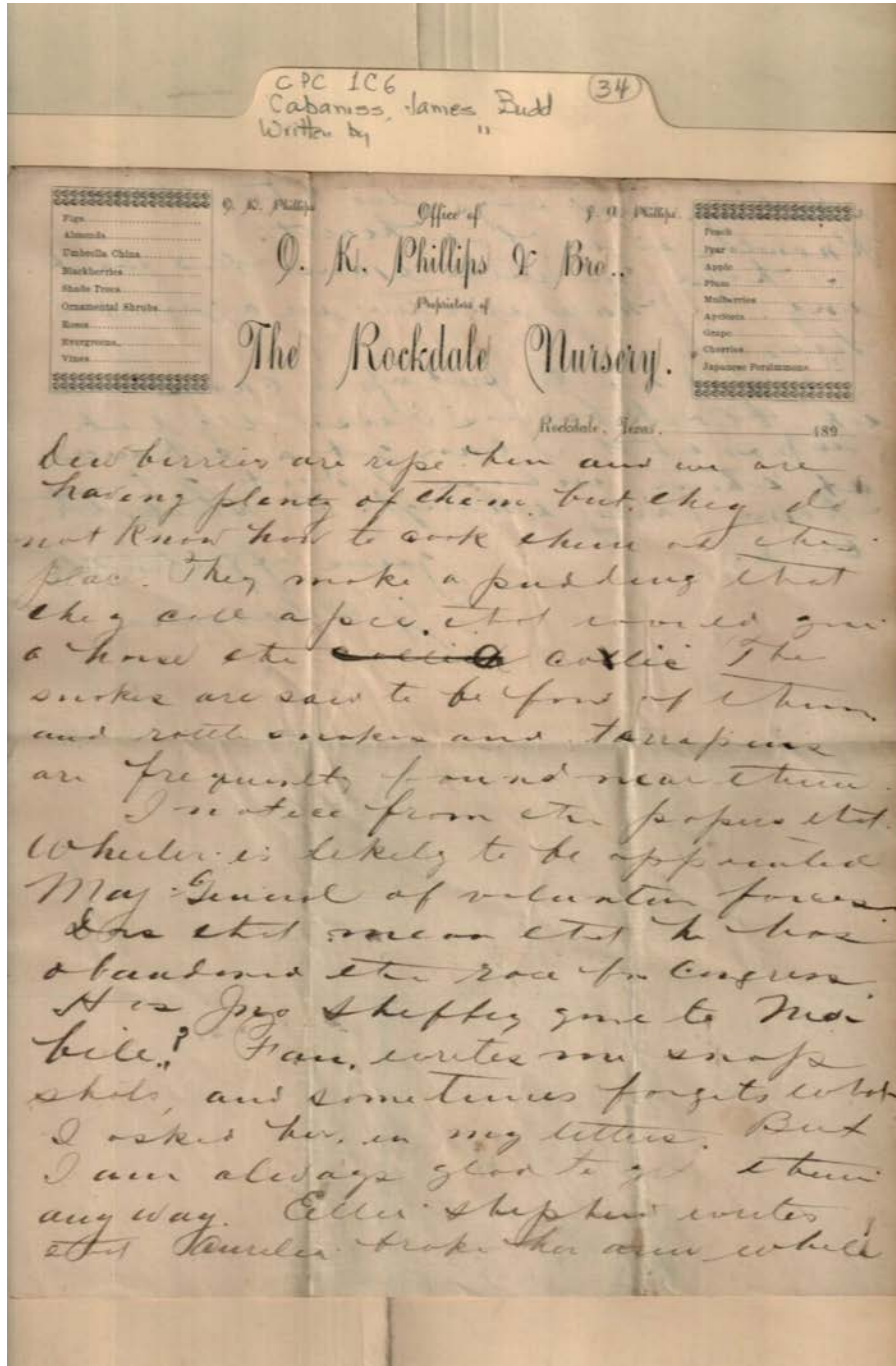 CPC 1C6
(34)
Cabaniss, James Budd
Written by "
O. K. Phillips
Office of
J. A. Phillips.
O. K. Phillips & Bro.,
Proprietors of
The Rockdale Nursery.
Figs
Almonds
Umbrella China
Blackberries
Shade Trees
Ornamental Shrubs
Roses
Evergreens
Vines
Peach
Pear
Apple
Plum
Mulberries
Apricots
Grape
Cherries
Japanese Persimmons
Rockdale, Texas, 189
Dew berries are ripe here and we are
having plenty of them, but they do
not know how to cook them at this
place. They make a pudding that
they call a pie, that would give
a horse the colic The
snakes are said to be fond of them
and rattle snakes and terrapins
are frequently found near them.
I notice from the papers that
Wheeler is likely to be appointed
Maj-General of volunteer forces.
Does that mean that he has
abandoned the race for Congress
Jno Sheffey gone to Mo
bile? Fan, writes me snap
shots, and sometimes forgets what
I asked her, in my letters. But
I am always glad to get them
any way. Ellie Stephens writes
that Aurelia broke her arm while